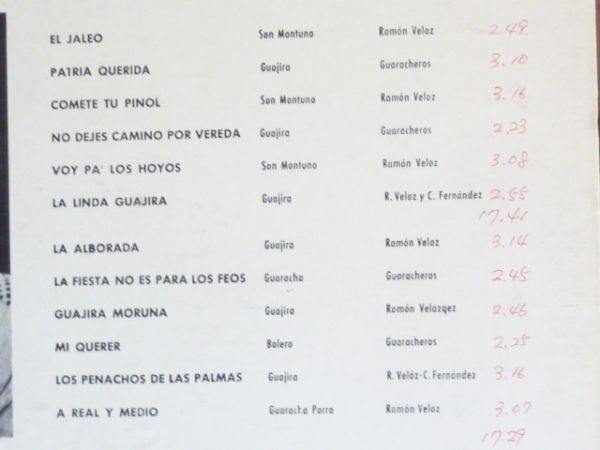 EL JALEO Son Montuno Ramón Veloz 2.49
PATRIA QUERIDA Guajira Guaracheros 3.10
COMETE TU PINOL Son Montuno Ramón Veloz 3.16
NO DEJES CAMINO POR VEREDA Guajira Guaracheros 2.23
VOY PA' LOS HOYOS Son Montuno Ramón Veloz 3.08
LA LINDA GUAJIRA Guajira R. Veloz y C. Fernández 2.55
17.41
LA ALBORADA Guajira Ramón Veloz 3.14
LA FIESTA NO ES PARA LOS FEOS Guaracha Guaracheros 2.45
GUAJIRA MORUNA Guajira Ramón Velazqez 2.46
MI QUERER Bolero Guaracheros 2.25
LOS PENACHOS DE LAS PALMAS Guajira R. Velóz-C. Fernández 3.16
A REAL Y MEDIO Guaracha Parro Ramón Veloz 3.07
17.29